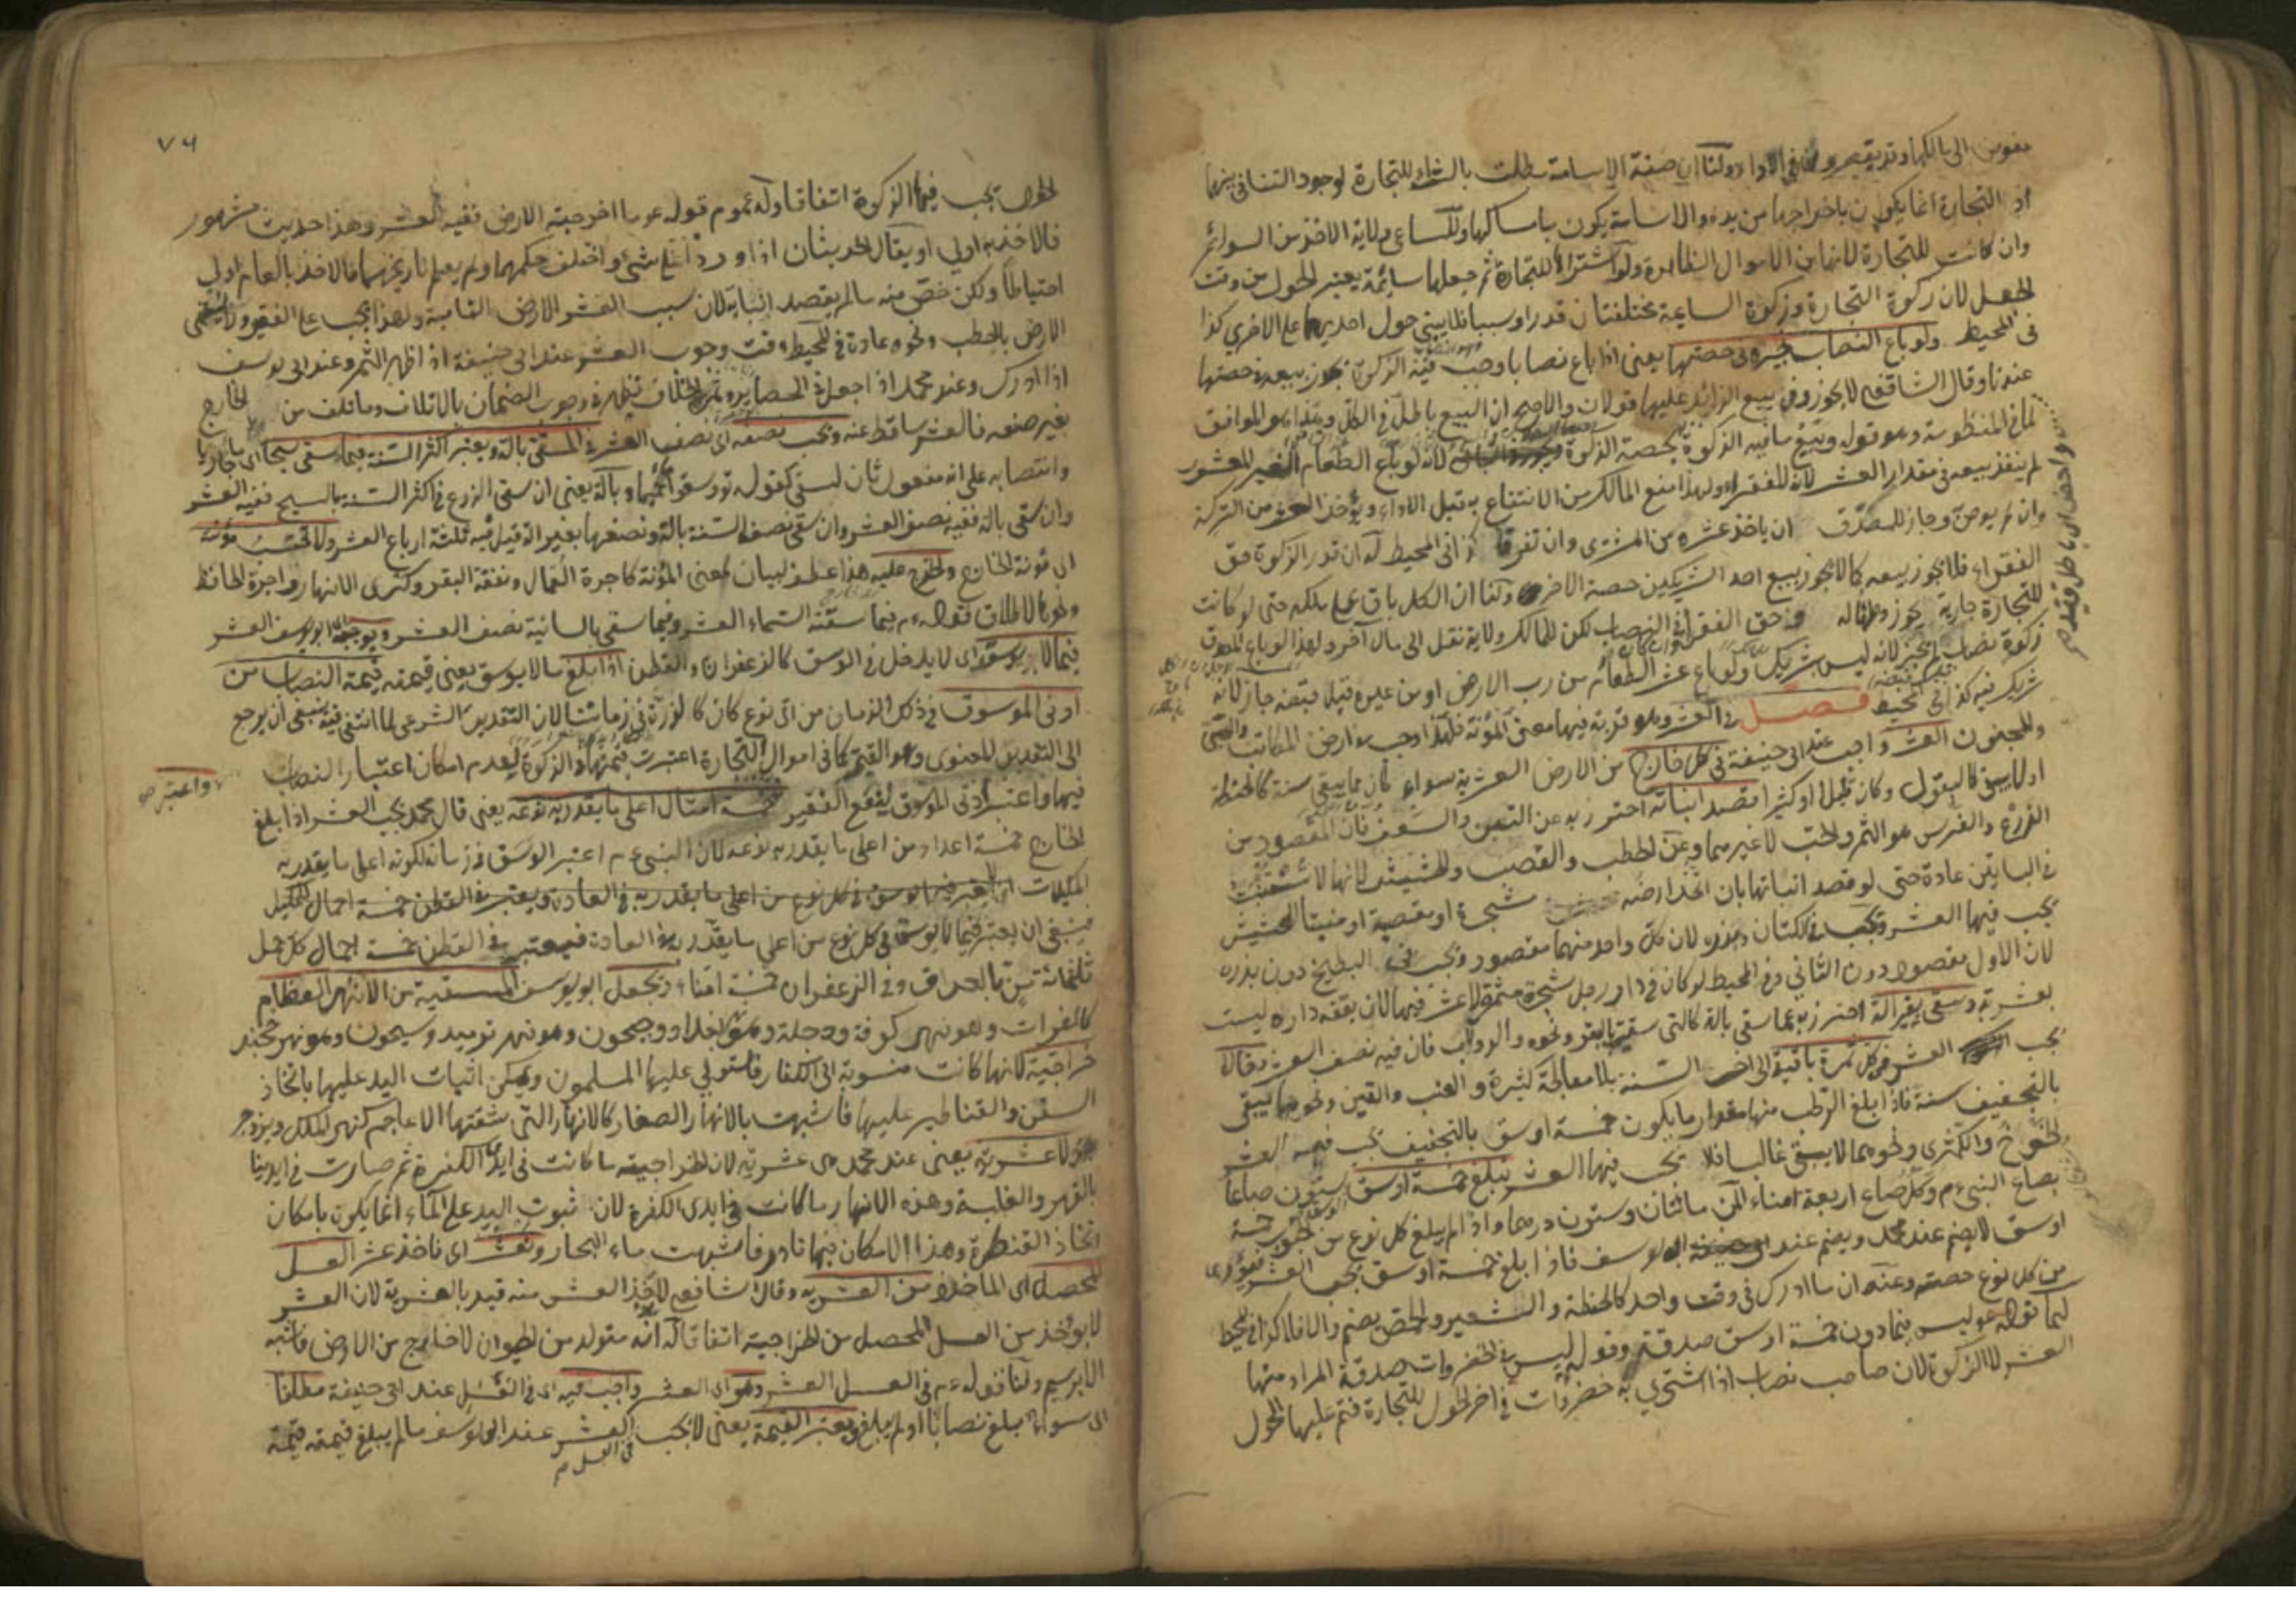 مفوض الى مالكها ولنا ان صفة الاسامة بطلت بالشراء للتجارة لوجود التنافي بينهما
اذ التجارة انما يكون باخراجها من يده والاسامة يكون بامساكها وللساعي ولاية الاخذ من السوائم
وان كانت للتجارة لانها من الاموال الظاهرة ولو اشتراها للتجارة ثم جعلها سائمة يعتبر الحول من وقت
الجعل لان زكوة التجارة وزكوة السايمة مختلفتان قدرا وسببا فلا يبنى حول احديهما على الاخرى كذا
في المحيط ولو باع النصاب نجيزه في حصتها يعنى اذا باع نصابا وجب فيه الزكوة يجوز بيعه في حصتها
عندنا وقال الشافعى لا يجوز وفى بيع الزائد عليها قولان والاصح ان البيع باطل فى الكل وهذا هو الموافق
لما فى المنظومة وهو قوله وبيع ما فيه الزكوة بحصة الزكوة لانه لو باع الطعام المعشور
لم ينفذ بيعه فى مقدار العشر لانه للفقراء ولهذا منع المالك من الانتفاع به قبل الاداء ويؤخذ العشر من التركة
وان لم يوص وجاز للمصدق ان ياخذ عشره من المشترى وان تفرقا كذا فى المحيط له ان قدر الزكوة حق
الفقراء فلا يجوز بيعه كما لا يجوز بيع احد الشريكين حصة الاخر ولنا ان الكل باق على ملكه حتى لو كانت
للتجارة جارية يجوز وطئها له وحق الفقراء فى النصاب لكن للمالك ولاية نقل الى مال آخر ولهذا لو باع
زكوة نصاب لانه ليس بشريك ولو باع عشر الطعام من رب الارض او من غيره قبل قبضه جاز لانه
شريك فيه كذا فى المحيط فصل فى العشر وهو قربة فيها معنى المؤنة فلهذا وجب فى ارض المكاتب والصبى
والمجنون العشر واجب عند ابى حنيفة فى كل خارج من الارض العشرية سواء كان مما يبقى سنة كالحنطة
او لا يبقى كالبقول وكان قليلا او كثيرا قصد انباته احترز به عن التبن والسعف فان المقصود من
الزرع والغرس هو الثمر والحب لا غيرهما وعن الحطب والقصب والحشيش لانها لا تستنبت
فى البساتين عادة حتى لو قصد انباتها بان اتخذ ارضه مشجرة او مقصبة او منبتا للحشيش
يجب فيها العشر ويجب فى الكتان وبذره لان كل واحد منهما مقصود ويجب فى البطيخ دون بذره
لان الاول مقصود دون الثانى وفى المحيط لو كان فى دار رجل شجرة مثمرة لا عشر فيها لان بقعة داره ليست
بعشرية وسقى بغير آلة احترز به عما سقى بآلة كالتى سقيت بالبقر ونحوه والدولاب فان فيه نصف العشر وقالا
يجب العشر فى كل ثمرة باقية الى اخر السنة بلا معالجة كثيرة والعنب والتين ونحوهما يبقى
بالتجفيف سنة فاذا بلغ الرطب منها مقدار ما يكون خمسة اوسق بالتجفيف يجب فيه العشر
الخوخ والكمثرى ونحوهما لا يبقى غالبا فلا يجب فيها العشر تبلغ خمسة اوسق ستون صاعا
بصاع النبى م وكل صاع اربعة امناء المن مائتان وستون درهما واذا لم يبلغ كل نوع من الحبوب خمسة
اوسق لا يضم عند محمد ويضم عند ابى يوسف فاذا بلغ خمسة اوسق يجب العشر فيؤدى
من كل نوع حصته وعنه ان ما ادرك فى وقت واحد كالحنطة والشعير والحمص يضم والا فلا كذا فى المحيط
لهما قوله عم ليس فيما دون خمسة اوسق صدقة وقوله ليس فى الخضروات صدقة المراد منها
العشر لا الزكوة لان صاحب نصاب اذا اشترى به خضروات فى اخر الحول للتجارة فتم عليها الحول
٧٦
الحول تجب فيها الزكوة اتفاقا وله عموم قوله عم ما اخرجته الارض ففيه العشر وهذا حديث مشهور
فالاخذ به اولى او يقال الحديثان اذا وردا فى شئ واختلف حكمهما ولم يعلم تاريخهما فالاخذ بالعام اولى
احتياطا ولكن خص منه ما لم يقصد انباته لان سبب العشر الارض النامية ولهذا يجب على الفقير ولا يستنمى
الارض بالحطب ونحوه عادة فى المحيط وقت وجوب العشر عند ابى حنيفة اذا ظهر الثمر وعند ابى يوسف
اذا ادرك وعند محمد اذا جعل فى الحظيرة وثمرة الخلاف تظهر فى وجوب الضمان بالاتلاف وما تلف من الخارج
بغير صنعه فالعشر ساقط عنه ويجب نصفه اى نصف العشر فى المسقى بآلة ويعتبر اكثر السنة فيما سقى سيحا اى ماء جاريا
وانتصابه على انه مفعول ثان لسقى كقوله تع وسقوا حميما وبآلة يعنى ان سقى الزرع فى اكثر السنة بالسيح ففيه العشر
وان سقى بآلة ففيه نصف العشر وان سقى نصف السنة بآلة ونصفها بغير آلة قيل فيه ثلثة ارباع العشر ولا تحتسب مؤنته
اى مؤنة الخارج والخرج عليه هذا عطف لبيان معنى المؤنة كاجرة العمال ونفقة البقر وكرى الانهار واجرة الحافظ
ونحوها لاطلاق قوله م فيما سقته السماء العشر وفيما سقى بالسانية نصف العشر ويوجب ابو يوسف العشر
فيما لا يوسق اى لا يدخل فى الوسق كالزعفران والقطن اذا بلغ ما لا يوسق يعنى قيمته قيمة النصاب من
ادنى الموسوق فى ذلك الزمان من اى نوع كان كالذرة فى زماننا لان التقدير الشرعى لما انتفى فيه ينبغى ان يرجع
الى التقدير المعنوى وهو القيمة كما فى اموال التجارة اعتبرت قيمتها فى الزكوة لعدم امكان اعتبار النصاب
فيها واعتبر ادنى الموسوق لنفع الفقير خمسة امثال اعلى ما يقدر به نوعه يعنى قال محمد يجب العشر اذا بلغ
الخارج خمسة اعداد من اعلى ما يقدر به نوعه لان النبى م اعتبر الوسق فى زمانه لكونه اعلى ما يقدر به
المكيلات
فينبغى ان يعتبر فيما لا يوسق فى كل نوع من اعلى ما يقدر به فى العادة فيعتبر فى القطن خمسة احمال كل حمل
ثلثمائة من بالعراق وفى الزعفران خمسة امناء ويجعل ابو يوسف المسقية من الانهر العظام
كالفرات وهو نهر كوفة ودجلة وهو نهر بغداد وجيحون وهو نهر ترميد وسيحون وهو نهر خجند
خراجية لانها كانت منسوبة الى الكفار فاستولى عليها المسلمون ويمكن اثبات اليد عليها باتخاذ
السفن والقناطير عليها فاشبهت بالانهار الصغار كالانهار التى شقتها الاعاجم كنهر الملك ويزدجرد
لا عشرية يعنى عند محمد هى عشرية لان الخراجية ما كانت فى ايدى الكفرة ثم صارت فى ايدينا
بالقهر والغلبة وهذه الانهار ما كانت فى ايدى الكفرة لان ثبوت اليد على الماء انما يكون بامكان
اتخاذ القنطرة وهذا الامكان فيها نادر فاشبهت ماء البحار ونعشر اى ناخذ عشر العسل
المحصل اى الماخوذ من العشرية وقال الشافعى لا يؤخذ العشر منه قيد بالعشرية لان العشر
لا يؤخذ من العسل المحصل من الخراجية اتفاقا له انه متولد من الحيوان لا خارج من الارض فاشبه
الابريسم ولنا قوله م فى العسل العشر وهو اى العشر واجب فيه اى فى العسل عند ابى حنيفة مطلقا
اى سواء بلغ نصابا او لم يبلغ ويعتبر القيمة يعنى لا يجب العشر فى العسل عند ابى يوسف ما لم يبلغ قيمته قيمة